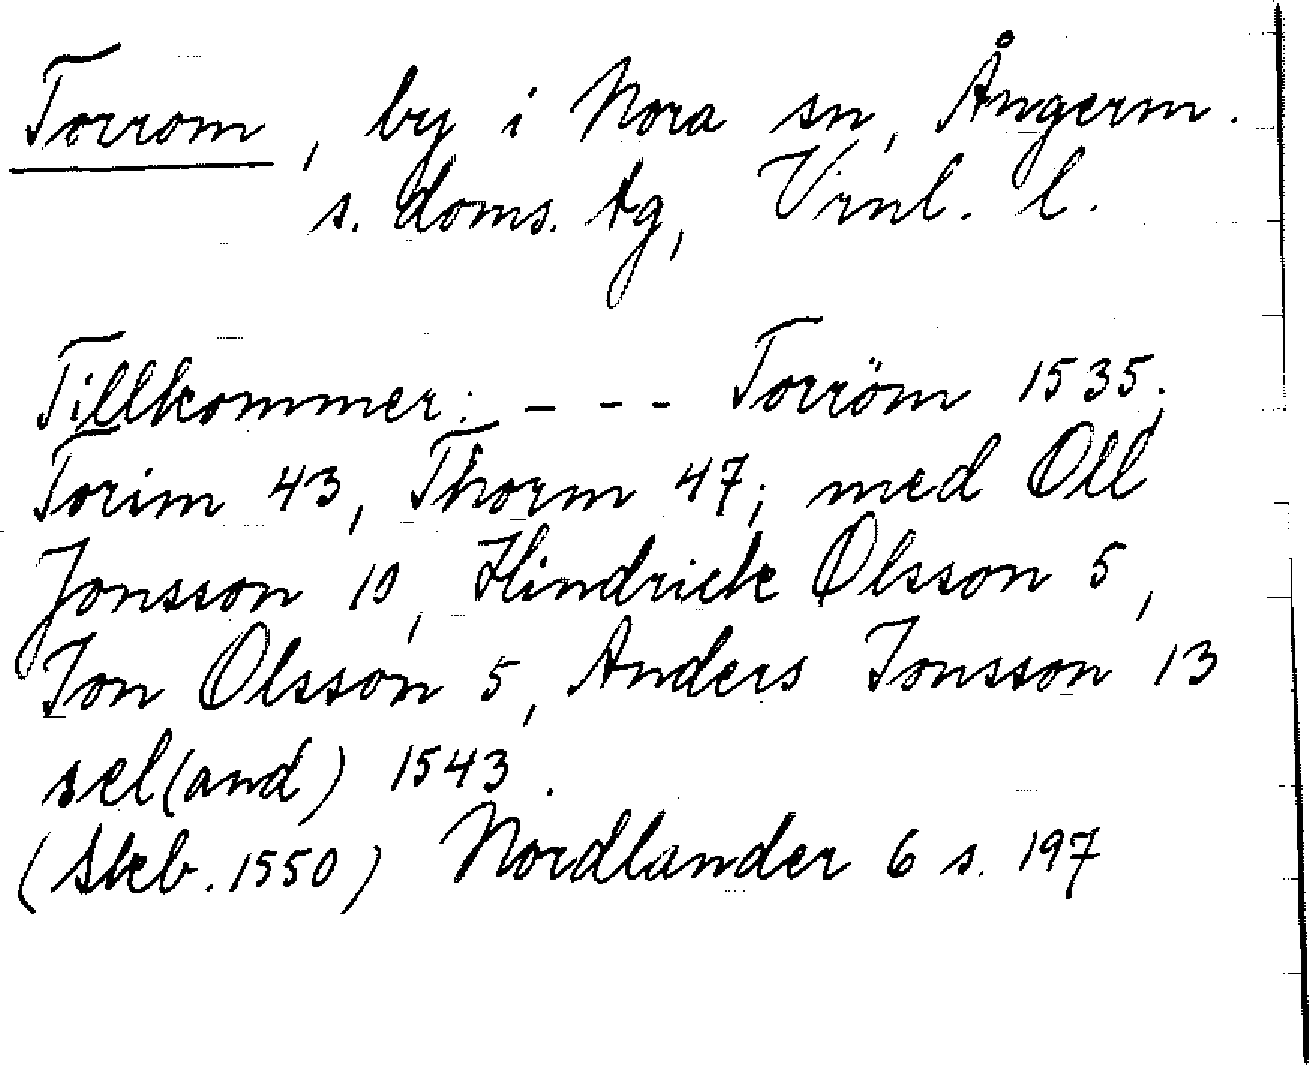 Torrom, by i Nora sn, Ångerm.
s. doms. tg, Vrnl. l.
Tillkommer: - - - Torröm 1535;
Torim 43, Thorm 47; med Oll
Jonsson 10, Hindrick Olsson 5,
Jon Olsson 5, Anders Jonsson 13
sel(and) 1543.
(Skb. 1550) Nordlander 6 s. 197